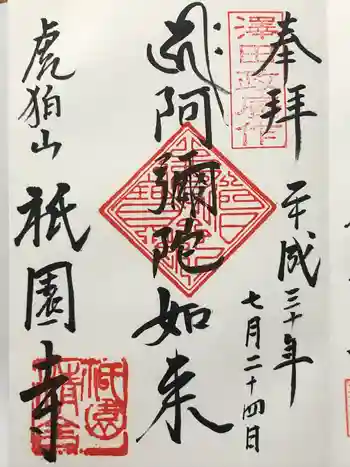 奉拝
平成三十年
七月二十四日
阿彌陀如来
虎狛山
祇園寺